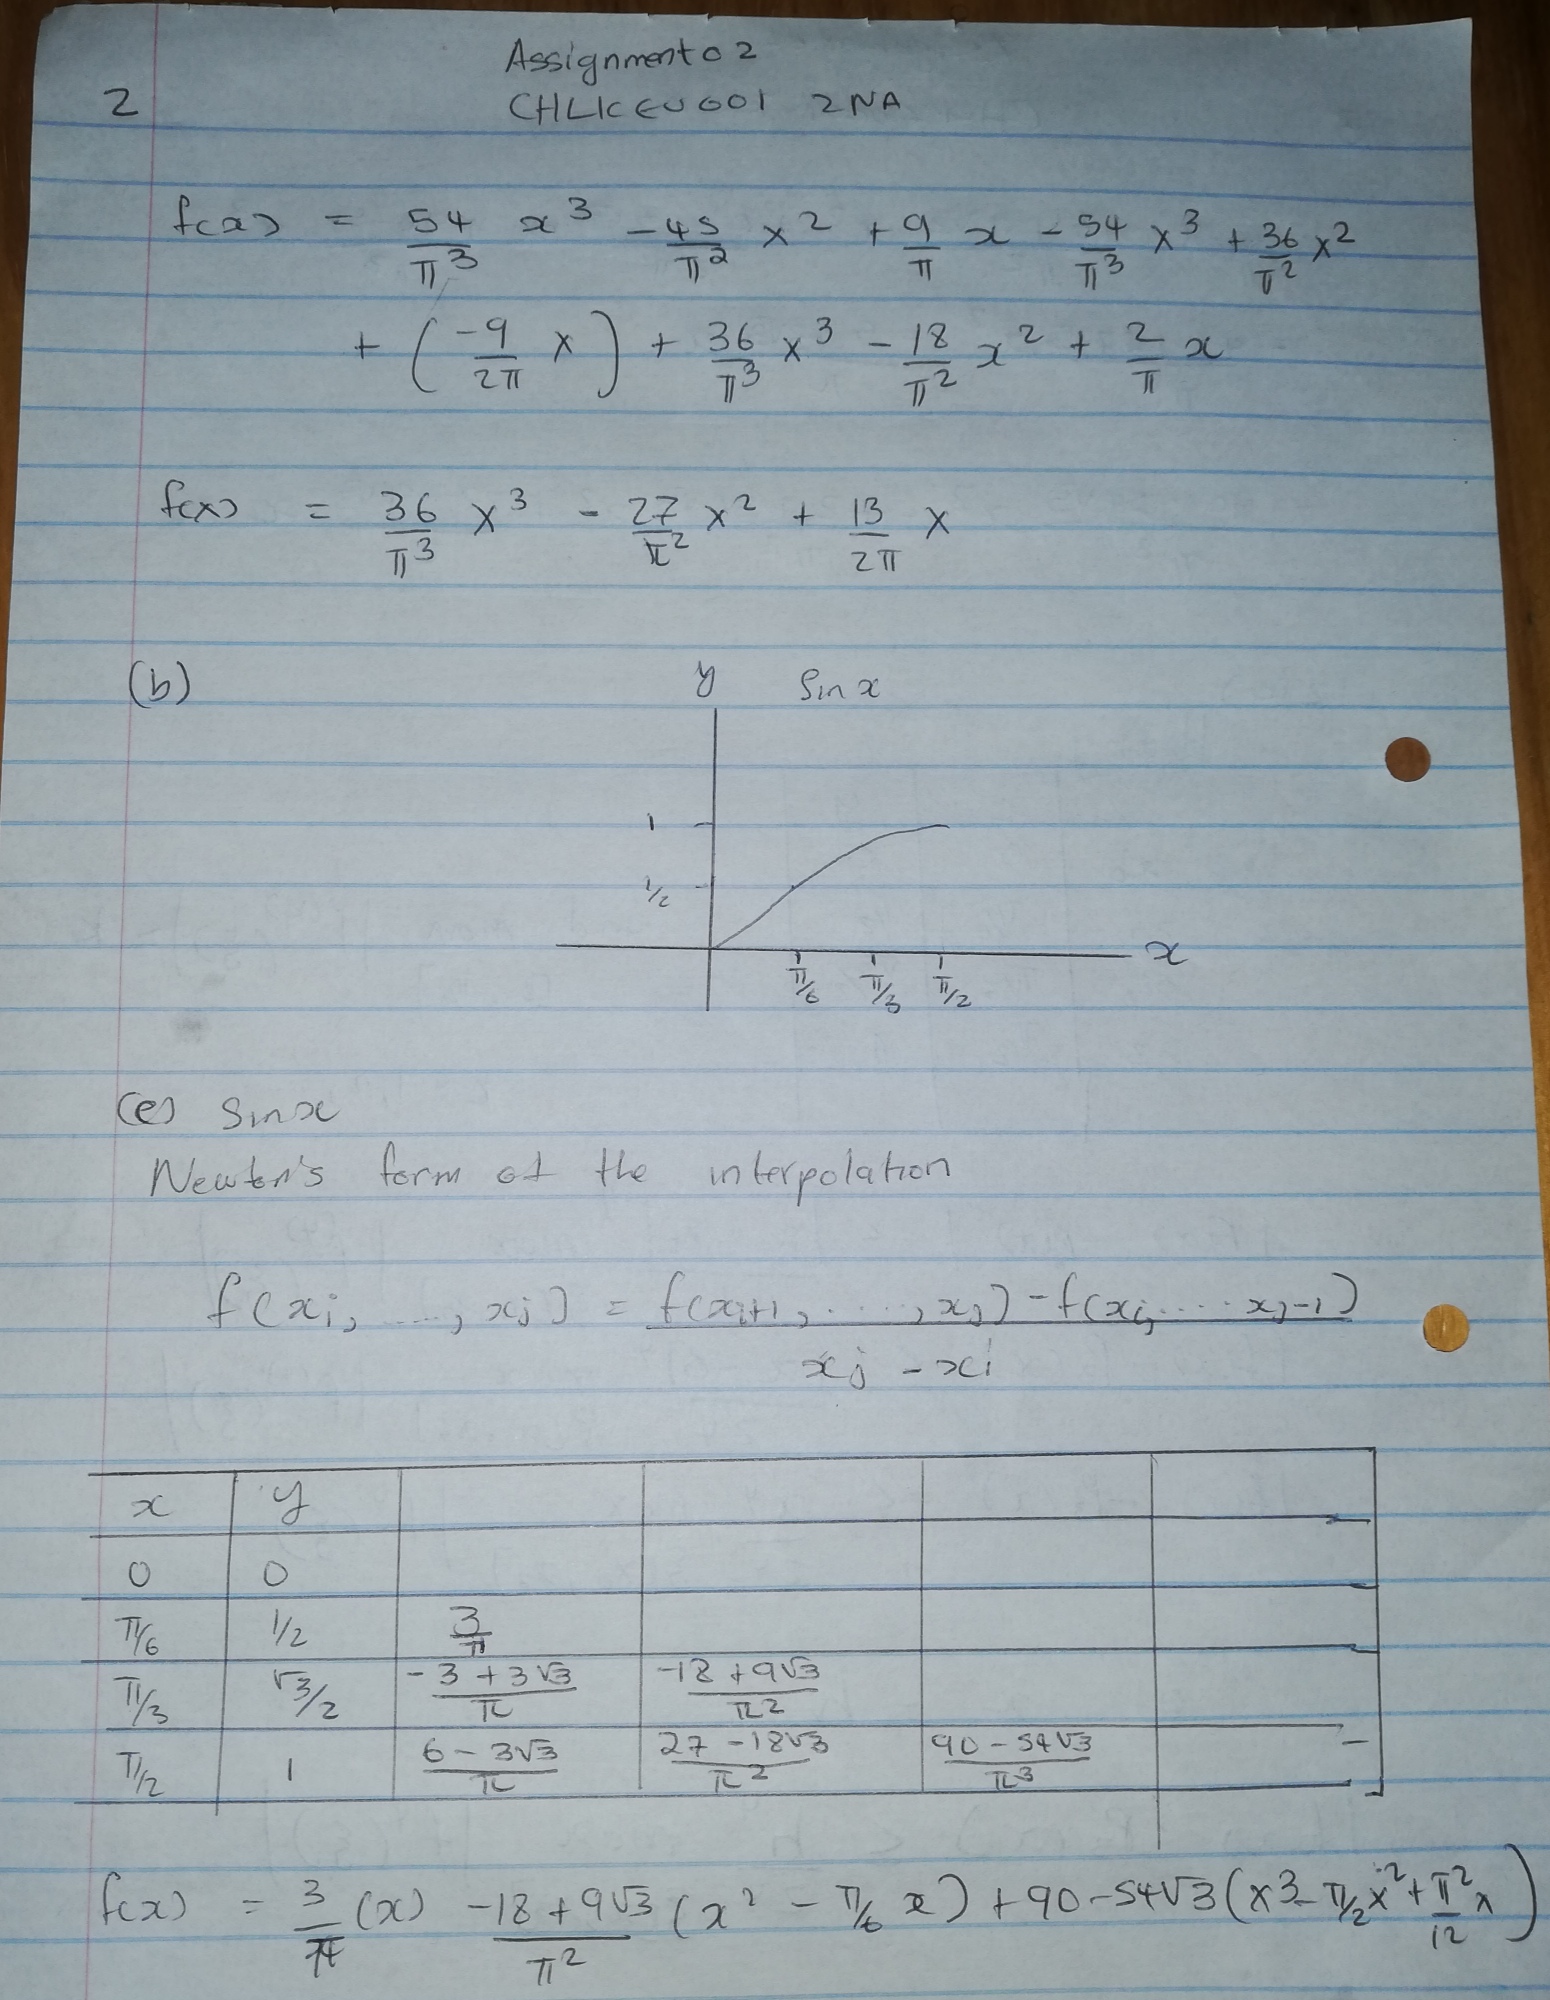 Assignment 02
2 CHLKEU001 2NA
f(x) = 54/π³ x³ - 45/π² x² + 9/π x - 54/π³ x³ + 36/π² x²
+ (-9/2π x) + 36/π³ x³ - 18/π² x² + 2/π x
f(x) = 36/π³ x³ - 27/π² x² + 13/2π x
(b) y Sin x
1
1/2
x
π/6 π/3 π/2
(e) Sinx
Newton's form of the interpolation
f(xi, ..., xj) = f(xi+1, ....., xj) - f(xi, .... xj-1) / xj - xi
x y
0 0
π/6 1/2 3/π
π/3 √3/2 -3+3√3/π -18+9√3/π²
π/2 1 6-3√3/π 27-18√3/π² 90-54√3/π³
f(x) = 3/π (x) -18+9√3/π² (x² - π/6 x) + 90-54√3 (x³ - π/2 x² + π²/12 x)